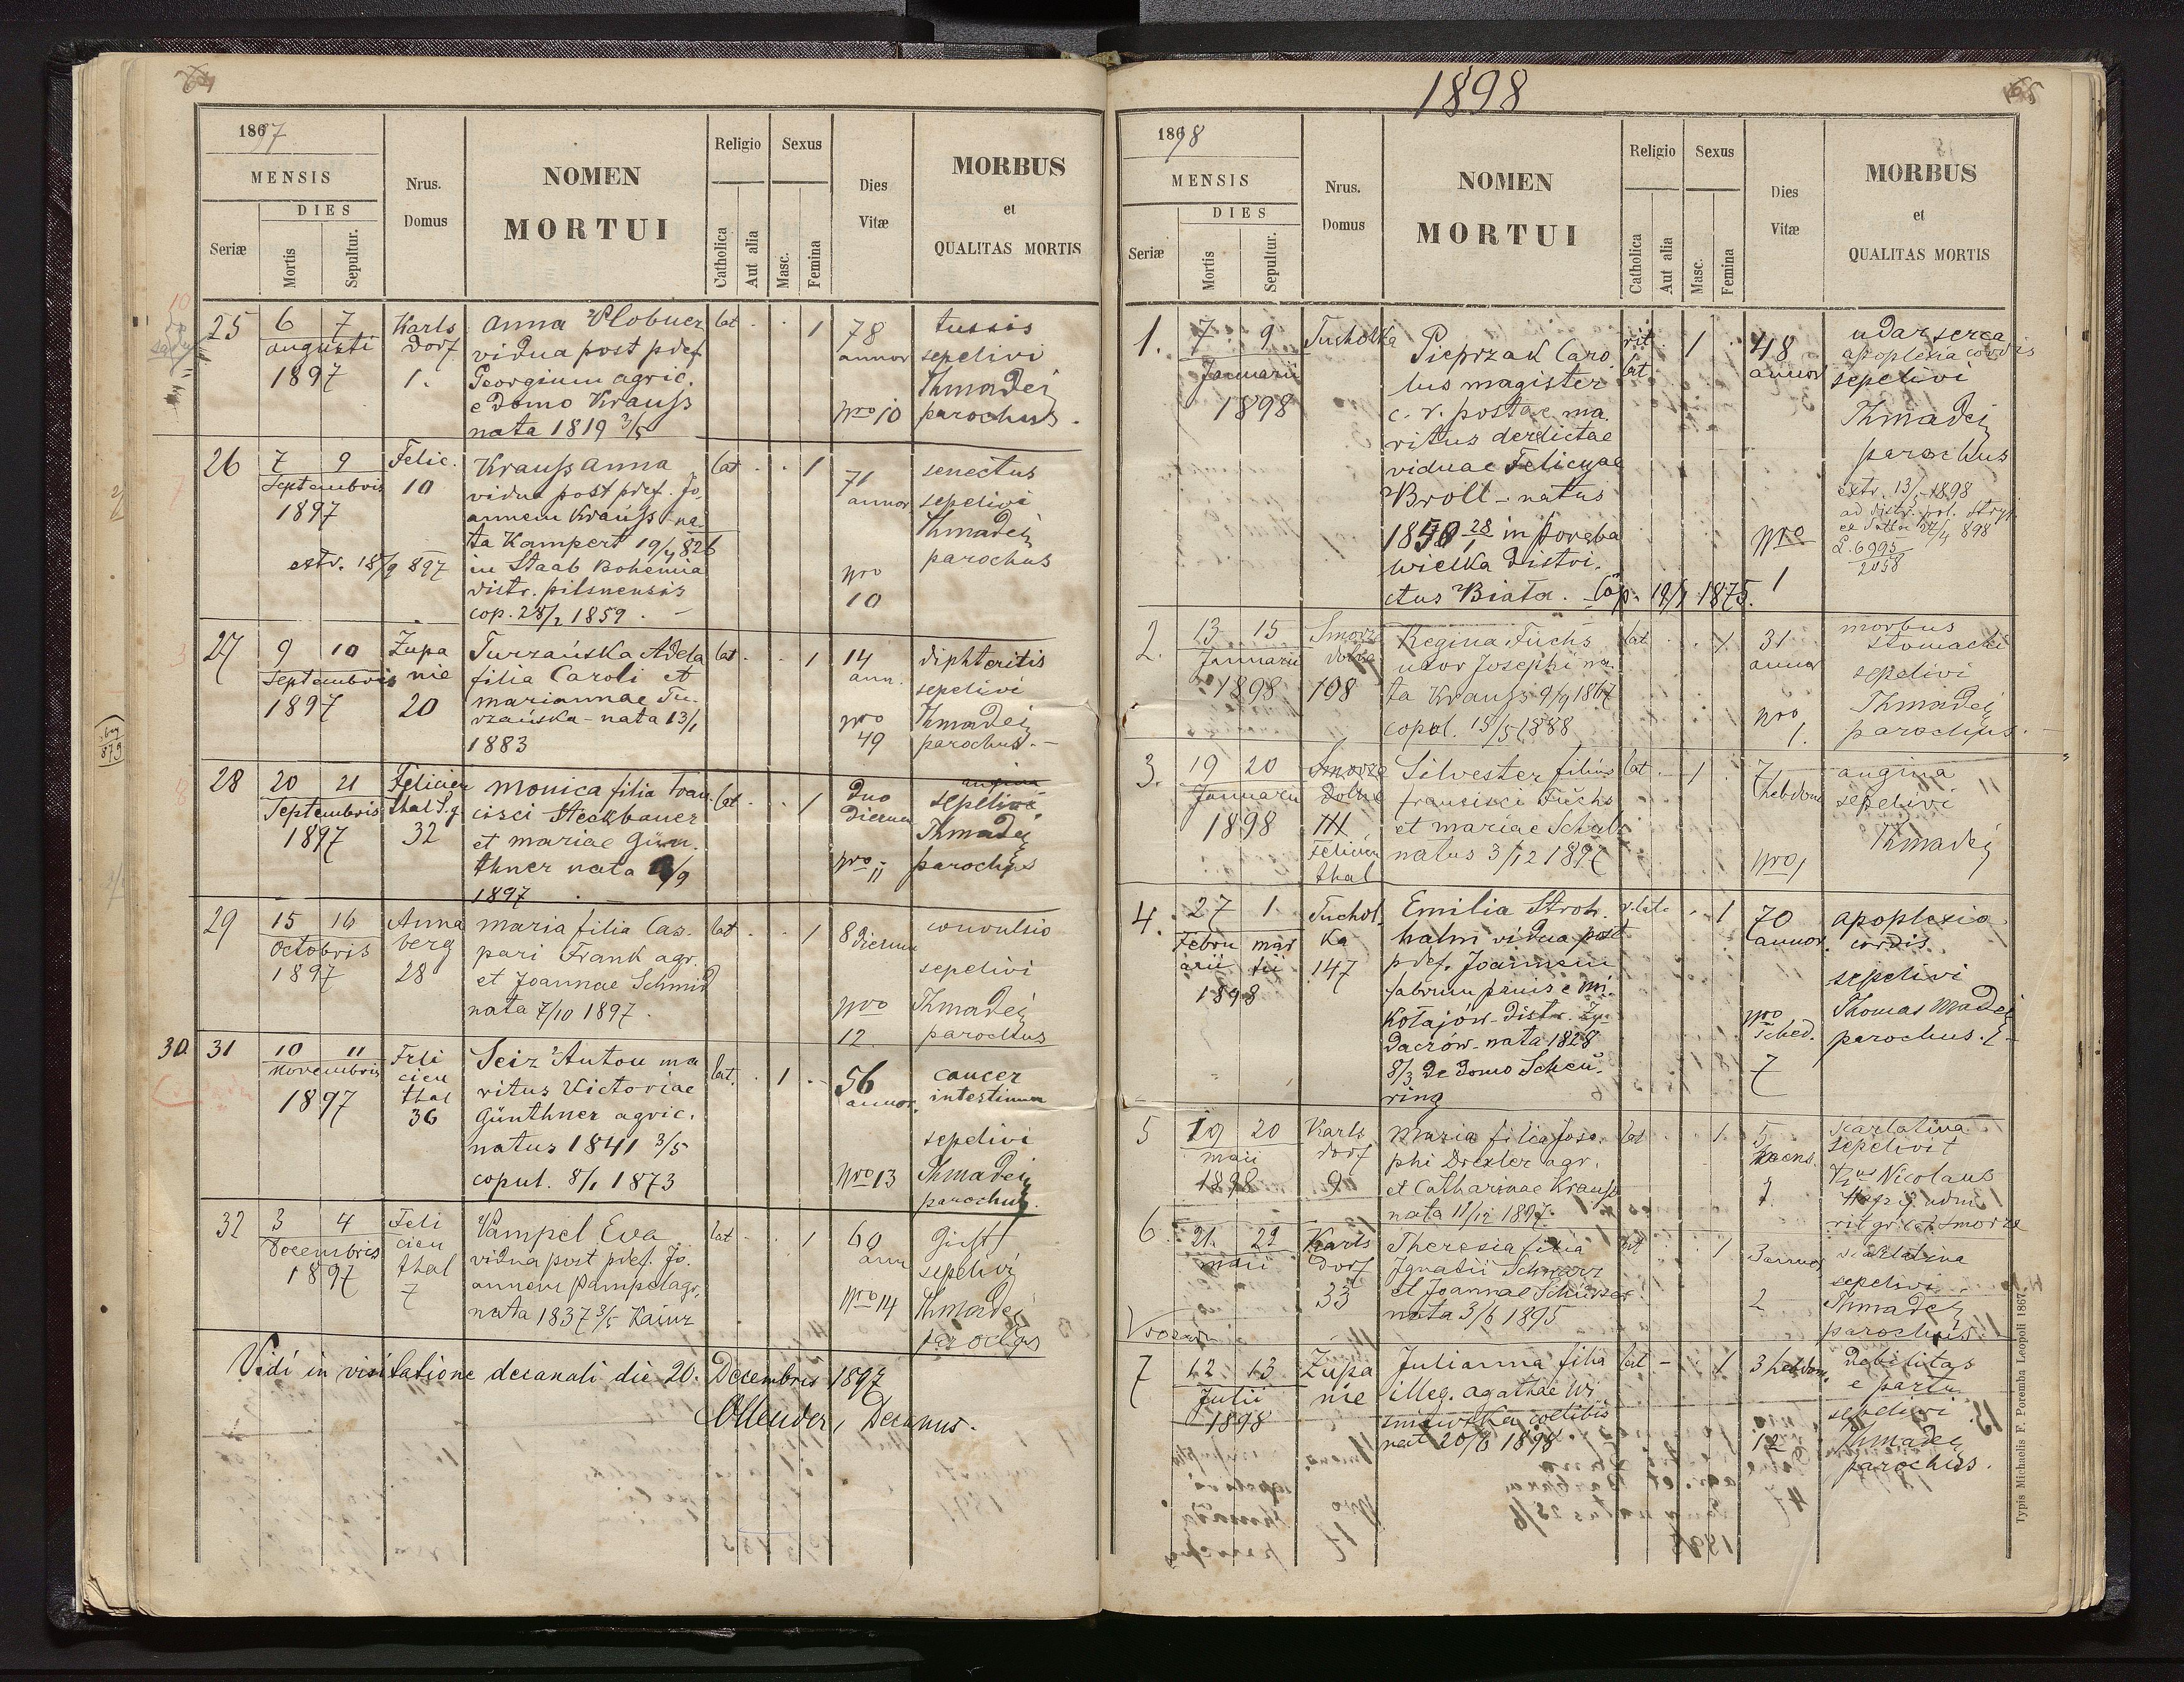 64
1897
MENSIS
DIES
Seriæ
Mortis
Sepultur.
Nrus.
Domus
NOMEN
MORTUI
Religio
Catholica
Aut alia
Sexus
Masc.
Femina
Dies
Vitæ
MORBUS
et
QUALITAS MORTIS
25
6 7
augusti
1897
Karls
dorf
1.
Anna
vidua post pdef
Georgium agric.
e domo Krauss
nata 1819 3/5
lat
1
78
annor
Nro 10
tussis
sepelivi
Thmadej
parochus.
26
7 9
Septembris
1897
extr. 18/9 897
Felic.
10
Krauss Anna
vidua post pdef. Jo,
annem Krauss na
ta Kampert 19/4 826
in Staab Bohemia
distr. pilsnensis
cop. 28/2 1859. -
lat
1
71
annor
Nro
10
senectus
sepelivi
Thmadej
parochus
27
9 10
Septembris
1897
Zupa
nie
20
Turzańska Adela
filia Caroli et
mariannae Tu-
rzańska - nata 13/1
1883
lat
1
14
ann.
Nro
49
diphteritis
sepelivi
Thmadej
parochus. -
28
20 21
Septembris
1897
Felicien
thal
32
Monica filia Fran
cisci Steckbauer
et mariae Gün
thner nata /9
1897
lat
1
Duo
dierum
Nro 11
angina
sepelivi
Thmadej
parochus
29
15 16
Octobris
1897
Anna
berg
28
Maria filia Cas-
pari Frank agr.
et Joannae Schmid
nata 7/10 1897.
lat
1
8 dierum
Nro
12
convulsio
sepelivi
Thmadej
parochus
30 31
10 11
Novembris
1897
Feli
cien
thal
36
Seiz Anton ma
ritus Victoriae
Günthner agric.
natus 1841 3/5
copul. 8/1 1873
lat.
1
56
annor.
Nro 13
cancer
intestinum
sepelivi
Thmadej
parochus.
32
3 4
Decembris
1897
Feli
cien
thal
7
Pampel Eva
vidua post pdef. Jo.
annem Pampel agr.
nata 1837 3/5 Kainz
lat
1
60
ann
Nro 14
sepelivi
Thmadej
parochus
Vidi in visitatione decanali die 20. Decembris 1897
Ollender, Decanus.
1898
65
1898
MENSIS
DIES
Seriæ
Mortis
Sepultur.
Nrus.
Domus
NOMEN
MORTUI
Religio
Catholica
Aut alia
Sexus
Masc.
Femina
Dies
Vitæ
MORBUS
et
QUALITAS MORTIS
1.
7 9
Januarii
1898
Tucholka
Pieprzak Caro
lus magister
c. r. postae ma
ritus derelictae
viduae Felicyae
Broll - natus
1850 28/1 in Poreba
wielka distri-
ctus Biała. Cop. 19/1 1875.
rit.
lat
1
48
annor
Nro
1
udar serca
apoplexia cordis
sepelivi
Thmadej
parochus
extr. 13/1 1898
2.
13 15
Januarii
1898
Smorze
dolne
108
Regina Fuchs
uxor Josephi na
ta Krauss 9/9 1867
copul. 15/5 1888
lat
1
31
annor
Nro
1.
morbus
stomachi
sepelivi
Thmadej
parochus.
3.
19 20
Januarii
1898
Smorze
Dolne
111
Felicien
thal
Silvester filius
francisci Fuchs
et mariae Schab
natus 3/12 1897
lat
1
7
hebdom
Nro 1
angina
sepelivi
Thmadej
4.
27 1
Febru mar
arii tii
1898
Tuchol
ka
147
Emilia Stroh
halm vidua post
pdef. Joannem
fabrum panis e Mi
kołajów distr. Ży-
daczów - nata 1828
8/3 de domo Scheu-
ring
r. lat.
1
70
annor.
Nro
Sched.
7
apoplexia
cordis
sepelivi
Thomas Madej
parochus.
5
19 20
maii
1898
Karls
dorf
9
Maria filia Jose
phi Drexler agr.
et Catharinae Krauss
nata 11/12 1897.
lat
1
5
mens.
1.
skarlatina
sepelivit
Nicolaus
rit gr. cat Smorze
6
21. 22
maii
Karls
dorf
33
Theresia filia
Ignatii Schwarz
et Joannae
nata 3/6 1895
lat
1
3 annor
2
skarlatina
sepelivi
Thmadej
parochus
7
12 13
Julii
1898
Zupa
nie
Julianna filia
illeg. agathae Wi
śniewska coelibis
nat 20/6 1898
lat -
1
3 hebdom.
Nro
12
debilitas
e partu
sepelivi
Thmadej
parochus.
Typis Michaelis F. Poremba Leopoli 1867.